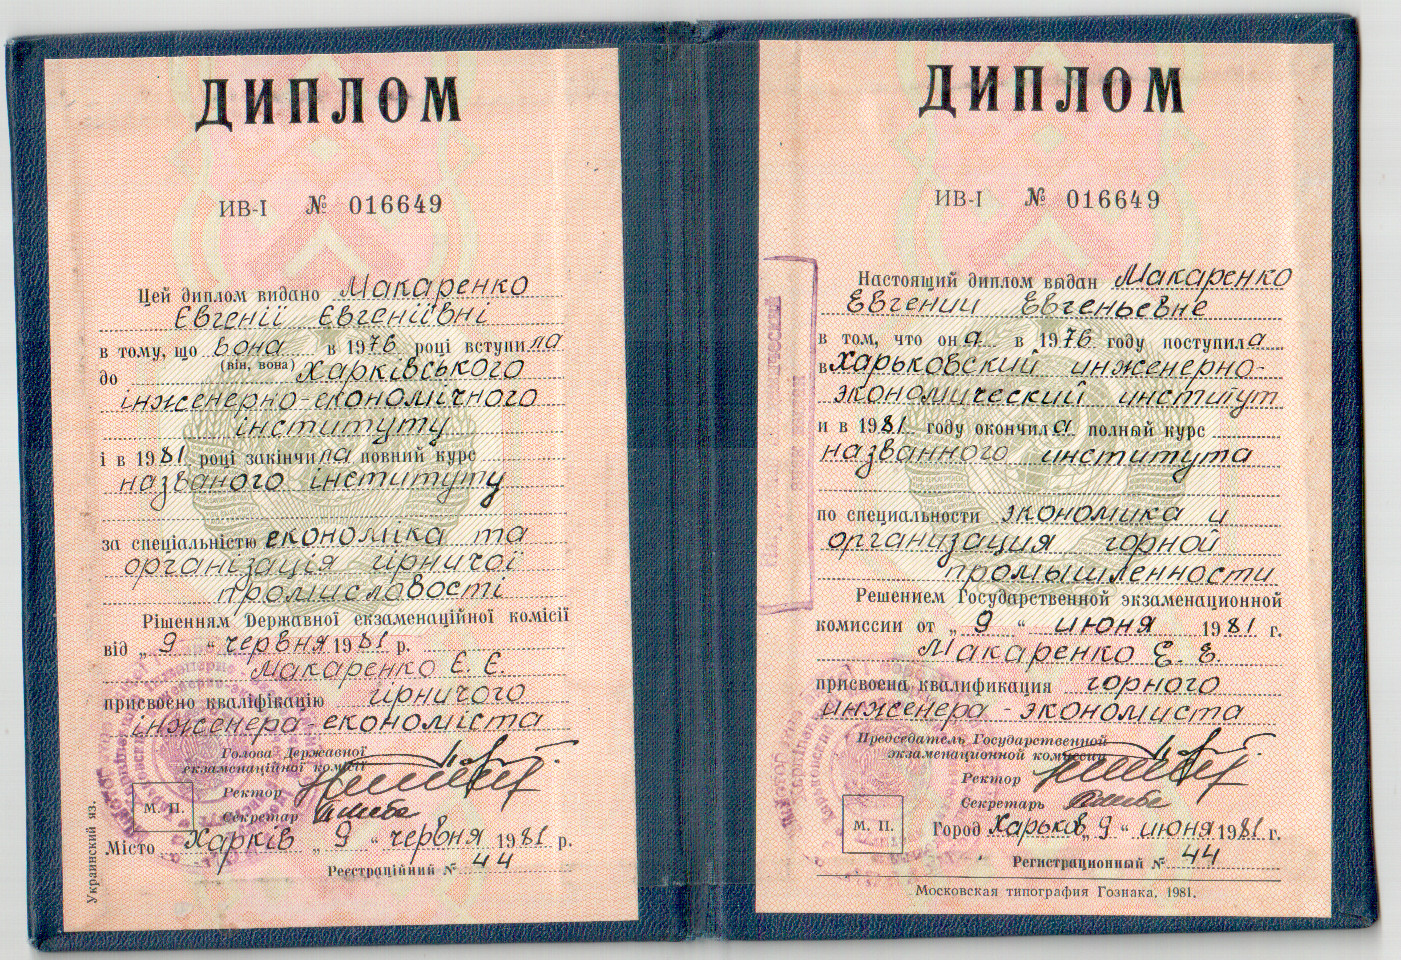 ДИПЛОМ
ИВ-I № 016649
Цей диплом видано Макаренко
Євгенії Євгеніївні
в тому, що вона в 1976 році вступила
(він, вона)
до Харківського
інженерно-економічного
інституту
і в 1981 році закінчила повний курс
названого інституту
за спеціальністю економіка та
організація гірничої
промисловості
Рішенням Державної екзаменаційної комісії
від „ 9 “ червня 1981 р.
Макаренко Є. Є.
присвоєно кваліфікацію гірничого
інженера-економіста
Голова Державної
екзаменаційної комісії
Ректор
Секретар
М. П.
Місто Харків „ 9 “ червня 1981 р.
Реєстраційний № 44
Украинский яз.
ДИПЛОМ
ИВ-I № 016649
Настоящий диплом выдан Макаренко
Евгении Евгеньевне
в том, что она в 1976 году поступила
в Харьковский инженерно-
экономический институт
и в 1981 году окончила полный курс
названного института
по специальности экономика и
организация горной
промышленности
Решением Государственной экзаменационной
комиссии от „ 9 “ июня 1981 г.
Макаренко Е. Е.
присвоена квалификация горного
инженера - экономиста
Председатель Государственной
экзаменационной комиссии
Ректор
Секретарь
М. П.
Город Харьков „ 9 “ июня 1981 г.
Регистрационный № 44
Московская типография Гознака. 1981.